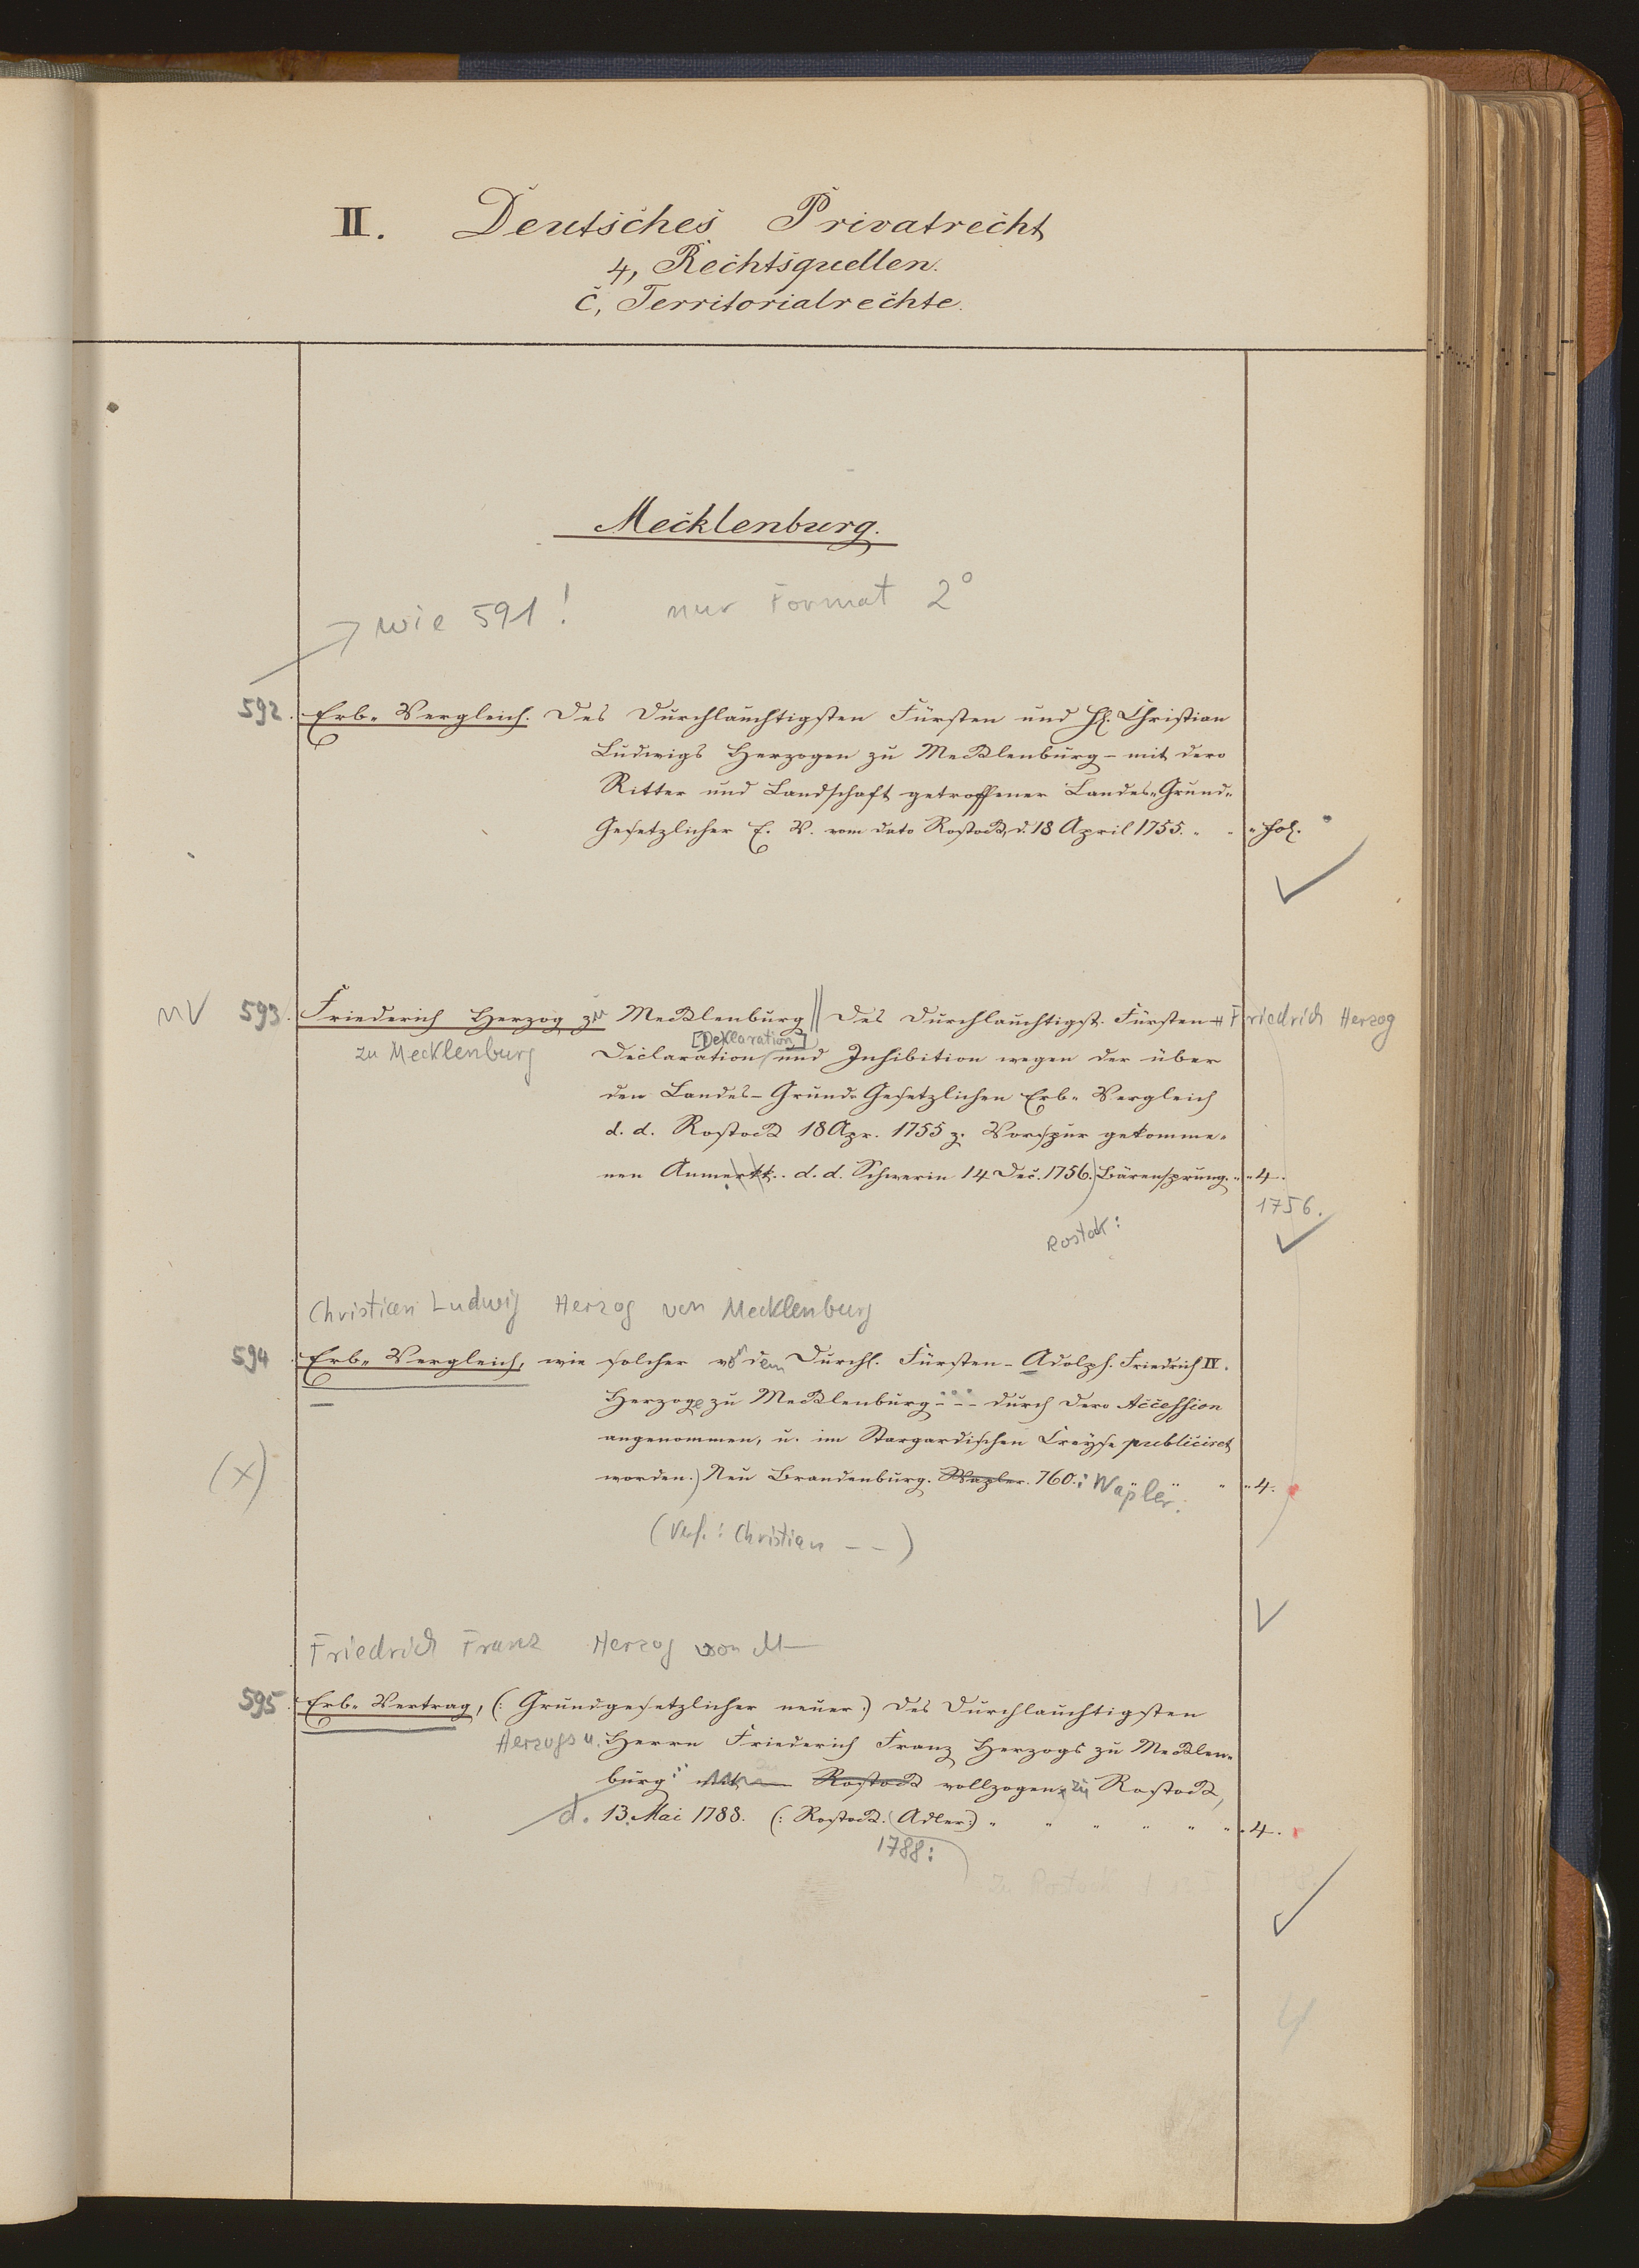 II. Deutsches Privatrecht
4, Rechtsquellen.
c, Territorialrechte.
Mecklenburg.
→ wie 591! nur Format 2°
592. Erb-Vergleich. Des Durchlauchtigsten Fürsten und H. Christian
Ludwigs Herzogen zu Mecklenburg - mit dero
Ritter und Landschaft getroffener Landes-Grund-
Gesetzlicher E. V. vom dato Rostock, d. 18 April 1755. " " " fol.
nV 593. Friederich Herzog zu Mecklenburg || Des Durchlauchtigst. Fürsten # Friedrich Herzog
zu Mecklenburg [Deklaration]
Declaration und Inhibition wegen der über
den Landes-Grund-Gesetzlichen Erb-Vergleich
d. d. Rostock 18 Apr. 1755 z. Vorspur gekomme-
nen Anmerkk. d. d. Schwerin 14 Dec. 1756.) Bärensprung. " " 4.
1756.
Rostok:
Christian Ludwig Herzog von Mecklenburg
594 Erb-Vergleich, wie solcher von dem Durchl. Fürsten - Adolph. Friedrich IV.
Herzoge zu Mecklenburg - - - durch dero Accession
angenommen, u. im Stargardischen Creyse publiciret
(x) worden.) Neu Brandenburg. Wapler. 760.: Wapler: " " " 4.
(Verf.: Christian - - )
Friedrich Franz Herzog von M—
595. Erb-Vertrag, (: Grundgesetzlicher neuer:) Des Durchlauchtigsten
Herzogs u. Herrn Friederich Franz Herzogs zu Mecklen-
burg mit Rostock vollzogen zu Rostock,
d. 13. Mai 1788. (: Rostock. Adler:) " " " " " " 4.
1788:
zu Rostock
4